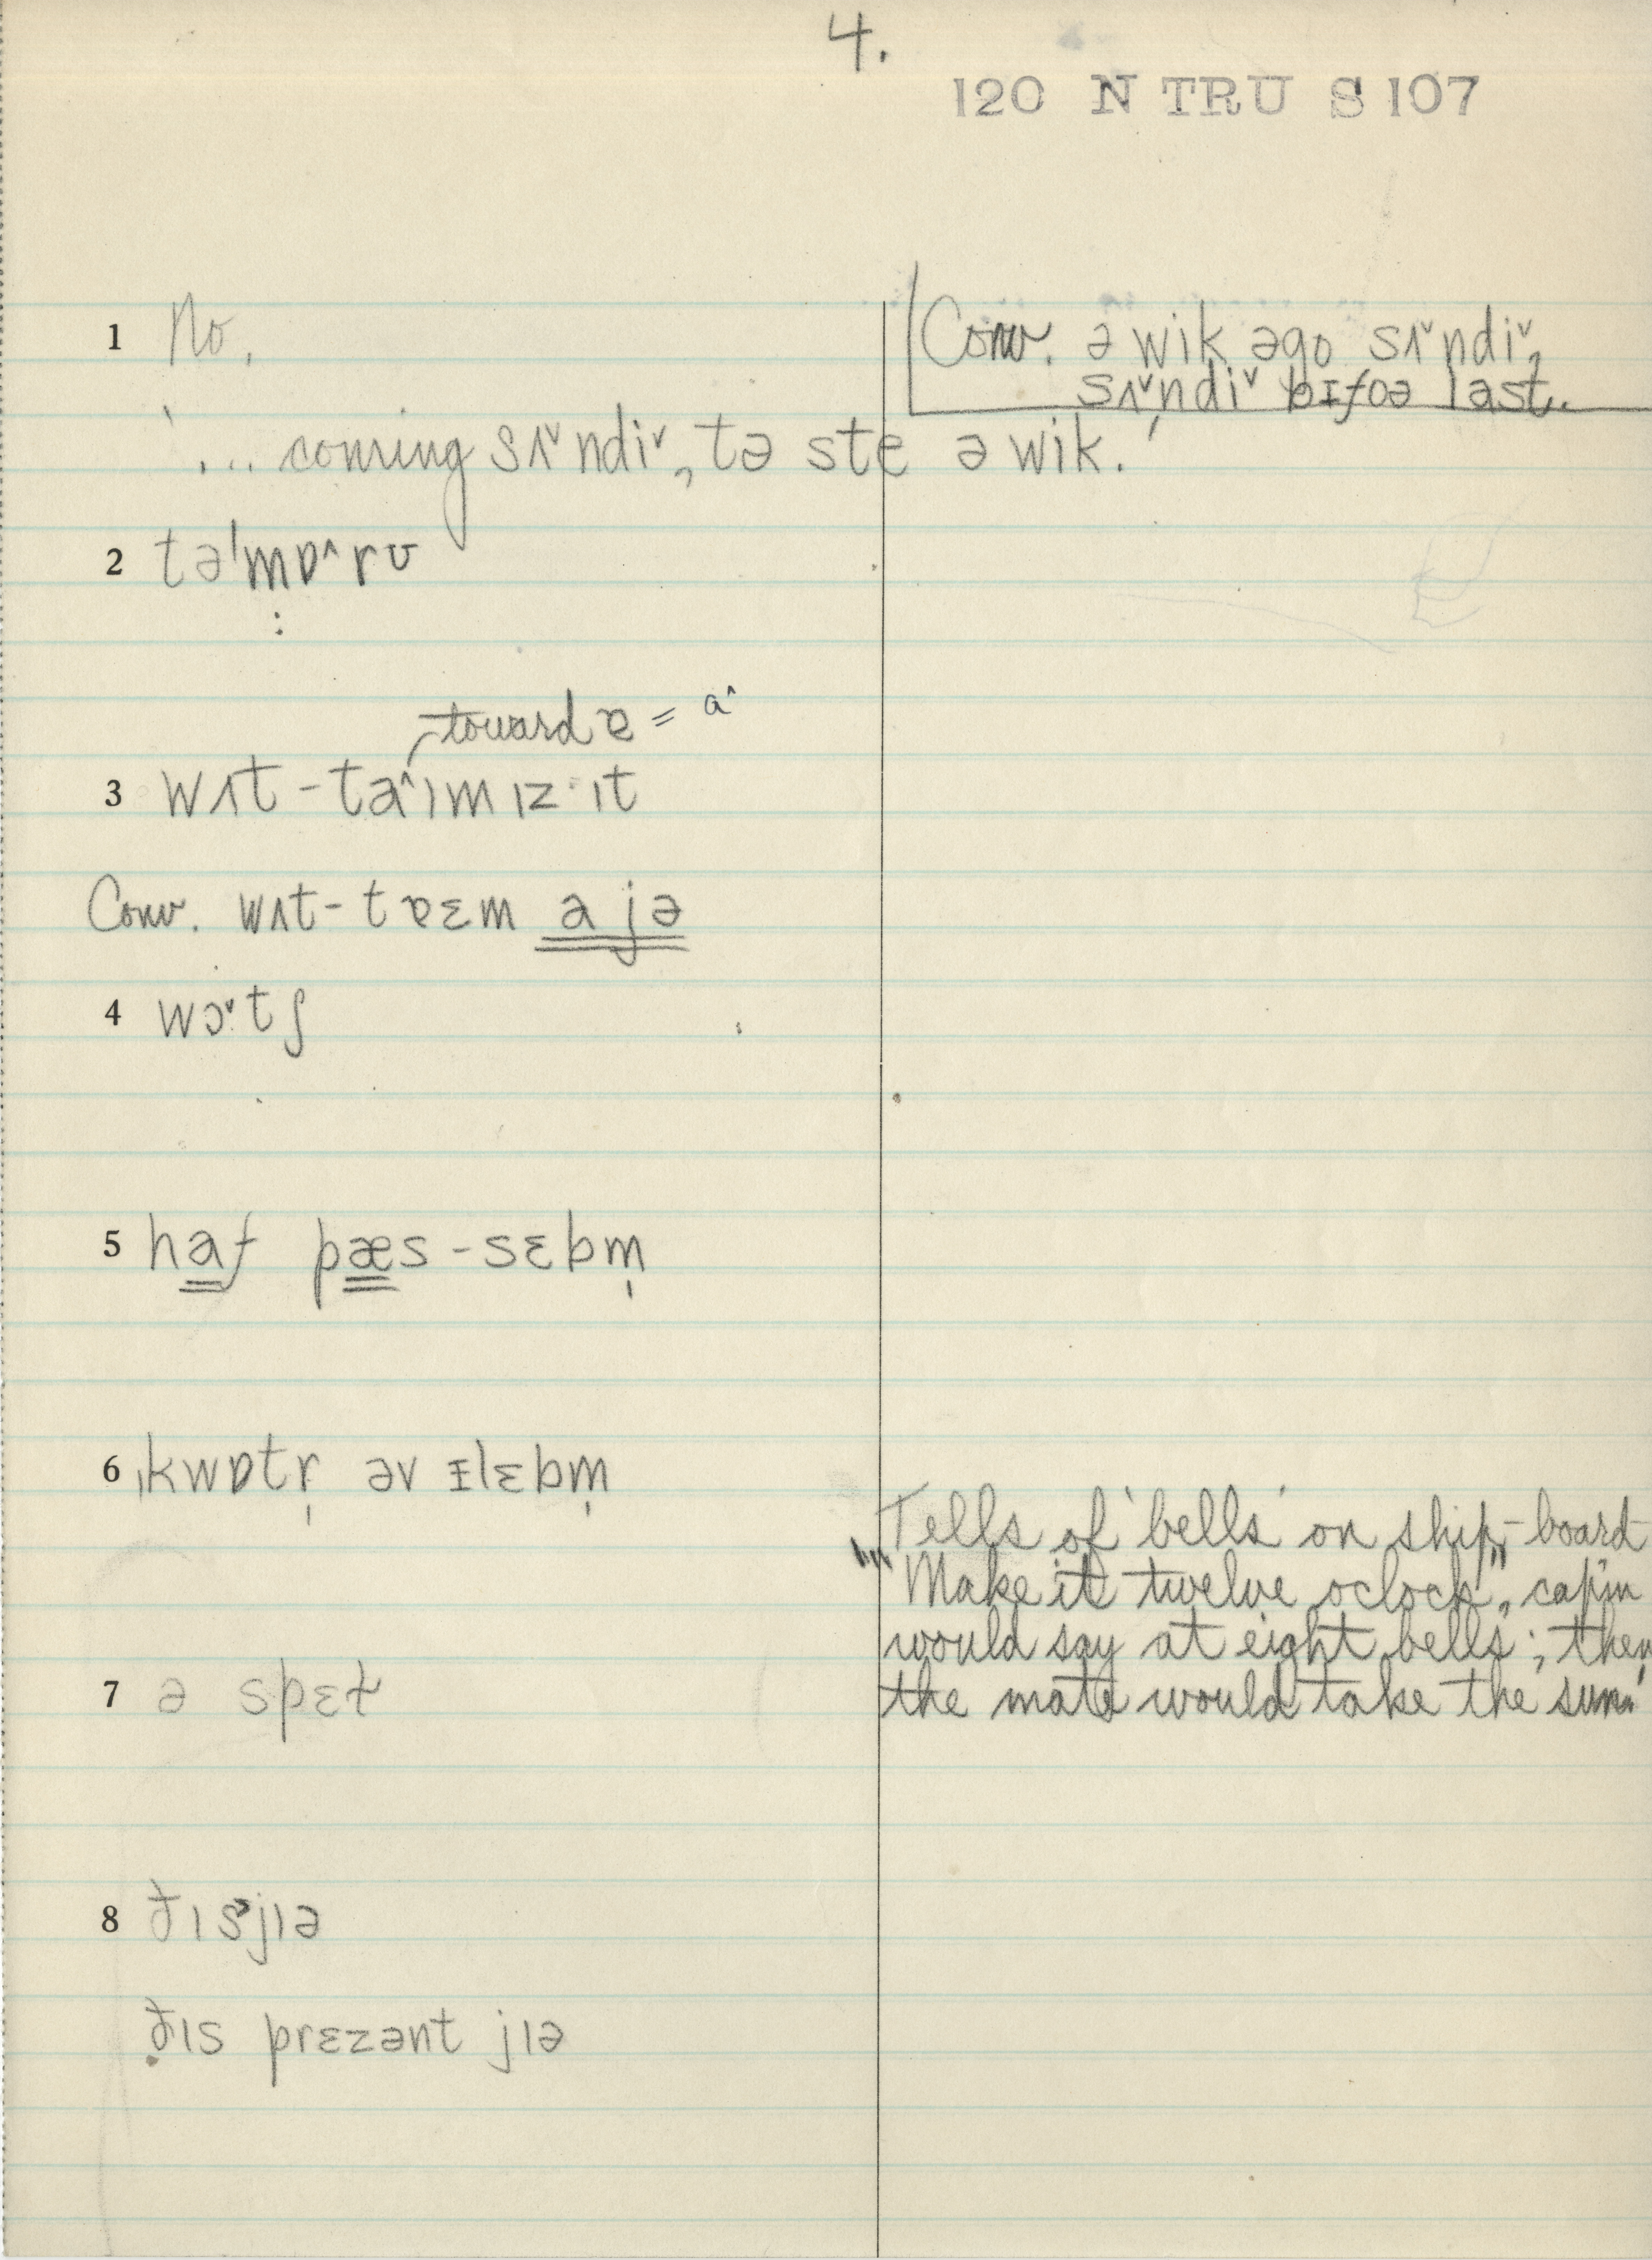 4.
120 N TRU S 107
1 No.
Conv. ə wik əgo sʌ˅ndi˅,
sʌ˅ndi˅ bɪfoə last.
'... coming sʌ˅ndi˅, tə ste ə wik.'
2 tə'mɒ^rʊ
:
toward ɐ = a^
3 wʌt-ta^ɪm ɪz ɪt
Conv. wʌt-tɐɛm a jə
4 wɔ˅tʃ
5 haf pæs-sɛbm̩
6 kwɒtr̩ əv ɪlɛbm̩
"Tells of 'bells' on ship-board
"Make it twelve oclock", cap'm
would say at eight bells; then
the mate would take the sun."
7 ə spɛɫ
8 ðɪs jɪə
ðɪs prɛzənt jɪə